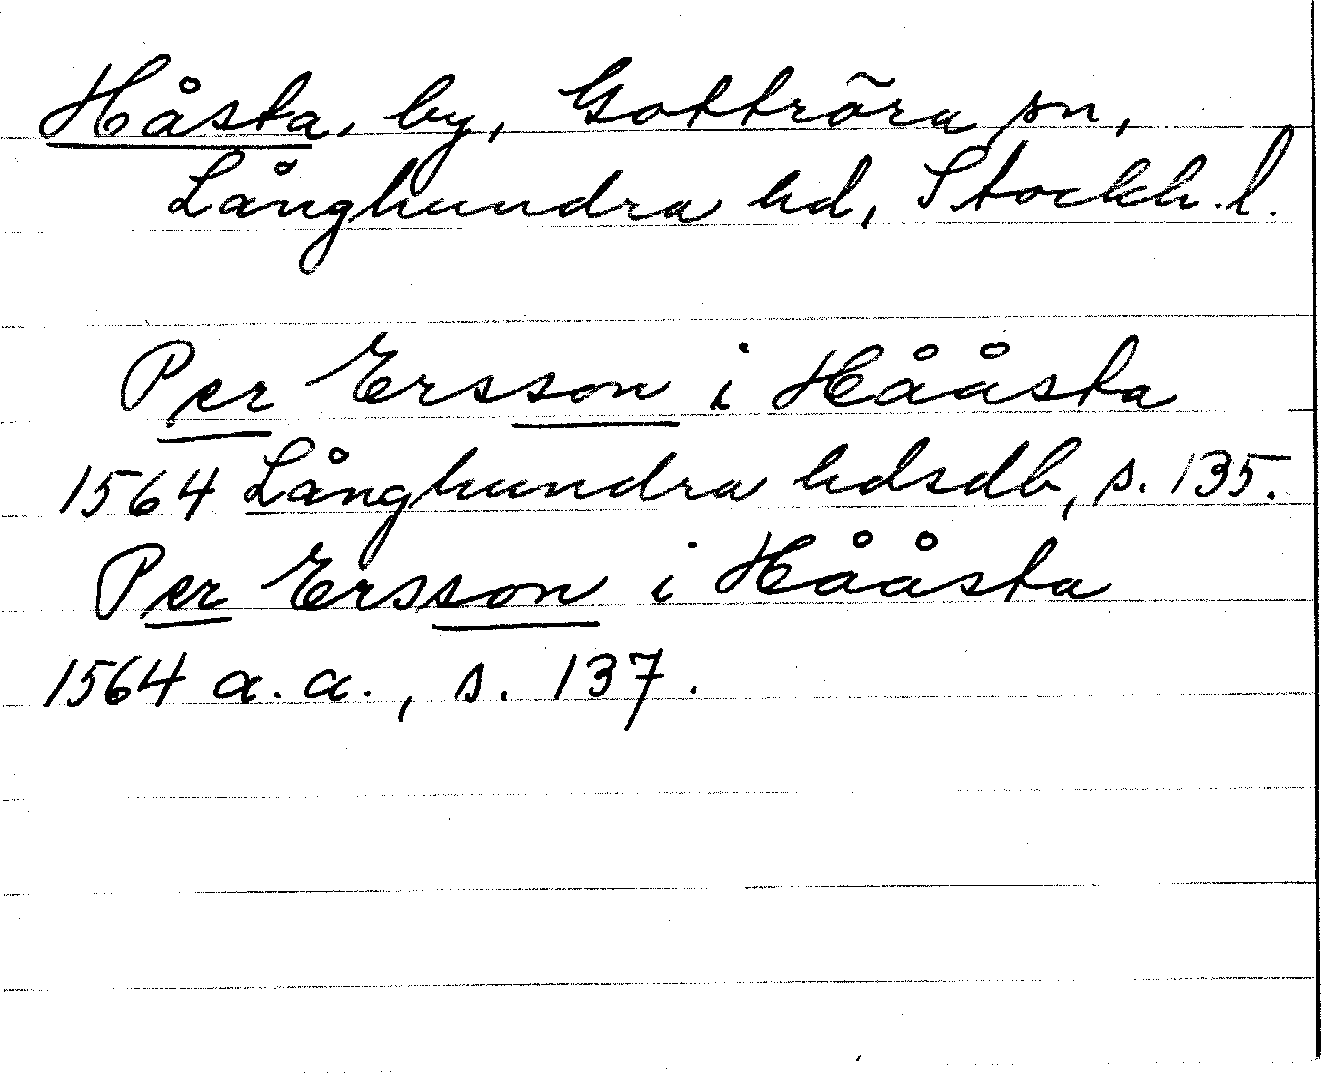 Håsta, by, Gottröra sn,
Långhundra hd, Stockh. l.
Per Ersson i Hååsta
1564 Långhundra hdsdb, s. 135.
Per Ersson i Hååsta
1564 a. a., s. 137.